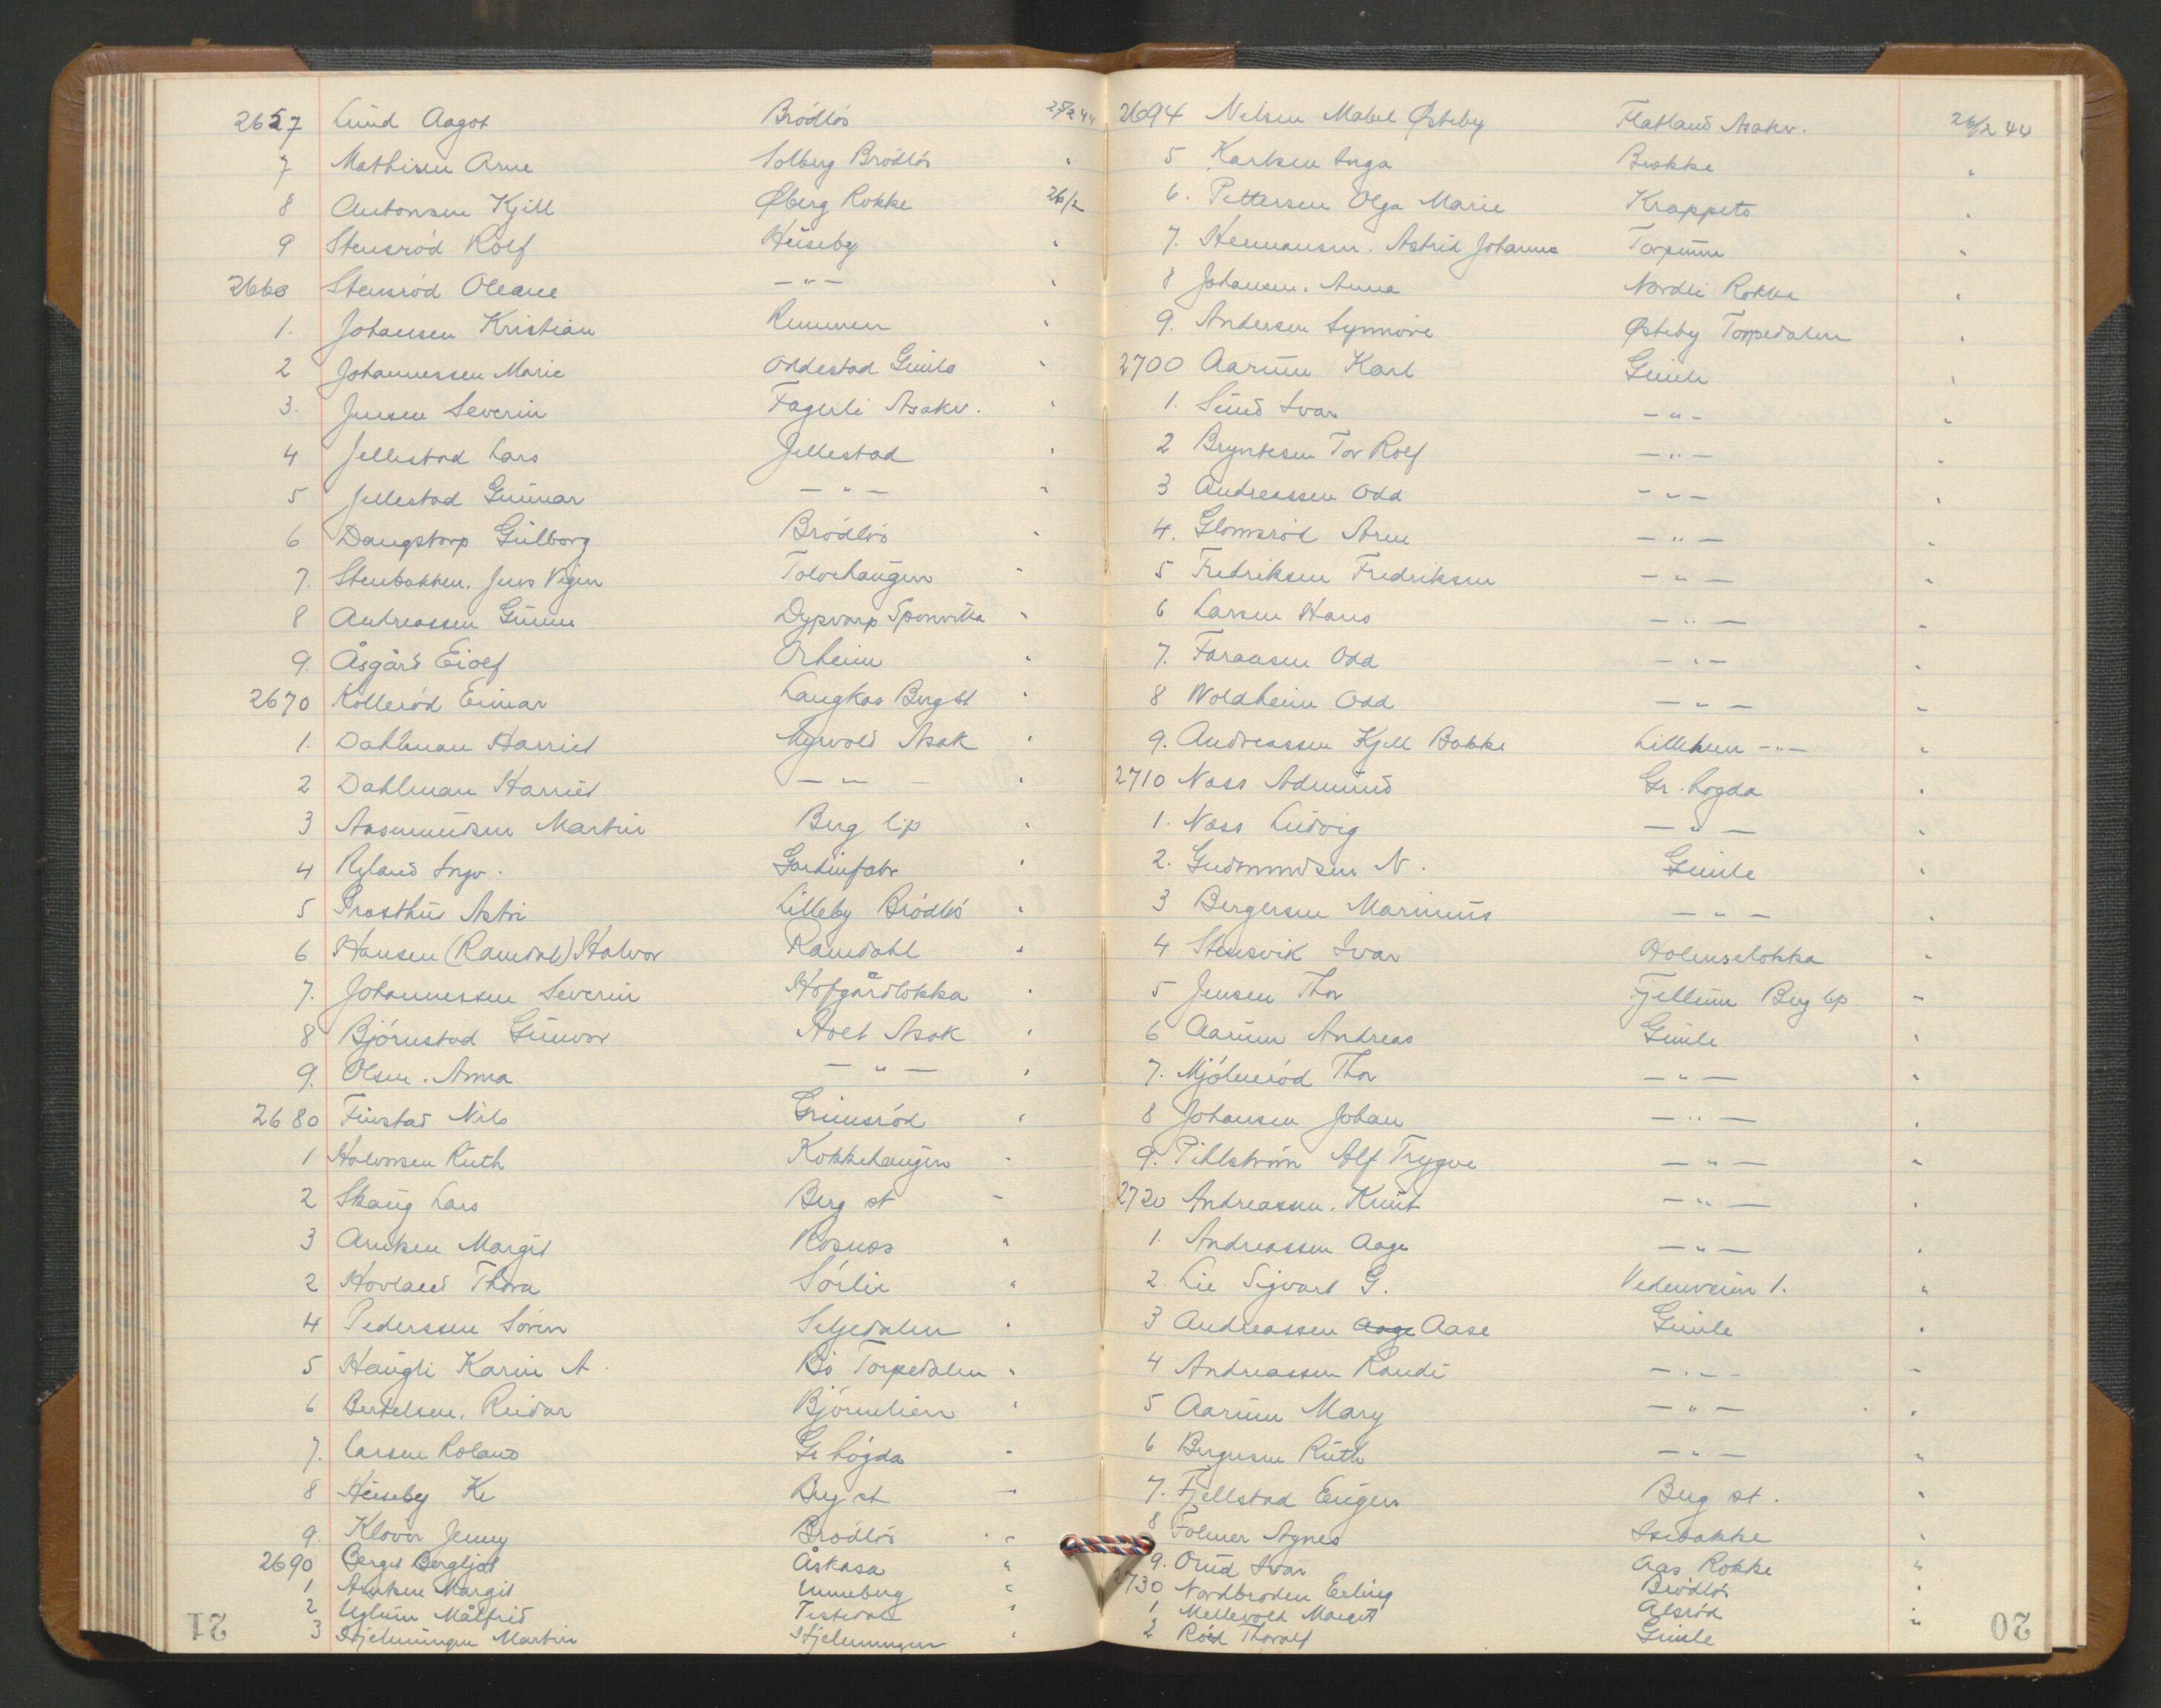 2657 Lund Aagot Brödlös 25/2 44
7 Mathisen Arne Solberg Brödlös "
8 Antonsen Kjell Øberg Rokke 26/2
9 Stensröd Rolf Huseby "
2660 Stensröd Oleane — " — "
1. Johansen Kristian Remmen "
2 Johannessen Marie Oddestad Gimle "
3. Jensen Severin Fagerli Asakv. "
4 Jellestad Lars Jellestad "
5 Jellestad Gunnar — " — "
6 Dangstorp Gulborg Brödlös "
7. Stenbakken. Jens Vigen Tolvehaugen "
8 Andreassen Gunnu Dypvarp Sponvika "
9. Åsgård Eiolf Orheim "
2670 Kölleröd Einar Langkas Berg st "
1. Dahlman Harriet Myrvold Asak "
2 Dahlman Harriet — " — "
3 Aasmundsen Martin Berg l/p "
4 Ryland Ingv. Gardinfabr "
5 Prosthus Astri Lilleby Brödlös "
6 Hansen (Ramdal) Halvor Ramdahl "
7. Johannessen Severin Hofgårdlökka "
8 Björnstad Gunvor Holt Asak "
9. Olsen. Anna — " — "
2680 Finstad Nils Grimsröd "
1 Halvorsen Ruth Kokkehaugen "
2 Skaug Lars Berg st "
3 Arntsen Margit Rosnæs "
2 Hovland Thora Sörlie "
4 Pederssen Sören Seljedalen "
5 Haugli Karin A. Bö Torpedalen "
6 Bertelsen. Reidar Björnelien "
7. Larsen Roland Gr Högda "
8 Huseby Kr Berg st "
9. Klöver Jenny Brödlös "
2690 Berget Bergljot Åskasa "
1 Arntsen Margit Unneberg "
2 Uglum Målfrid Testedal "
3 Hjelmungen Martin Hjelmungen "
21
2694 Nilsen Mabel Østeby Flatland Asakv. 26/2 44
5 Karlsen Inga Brekke "
6. Pettersen Olga Marie Krappeto "
7. Hermansen. Astrid Johanne Torpum "
8 Johansen. Anna Nordli Rokke "
9. Andersen Synnöve Østeby Torpedalen "
2700 Aarum Karl Gimle "
1. Sund Ivar — " — "
2 Bryntesen Tor Rolf — " — "
3 Andreassen Odd — " — "
4. Glomsröd Arne — " — "
5 Fredriksen Fredriksen — " — "
6 Larsen Hans — " — "
7. Faraasen Odd — " — "
8 Woldheim Odd — " — "
9. Andreassen Kjell Bakke Lillehun — " — "
2710 Næss Admund Gr. Högda "
1. Næss Ludvig — " — "
2. Gudmundsen N. Gimle "
3 Bergersen Marinius — " — "
4 Stensvik Ivar Holmselökka "
5 Jensen Thor Fjellum Berg l/p "
6 Aarum Andreas Gimle "
7. Mjölneröd Thor — " — "
8 Johansen Johan — " — "
9. Pihlström Alf Trygve — " — "
2720 Andreassen. Knut — " — "
1. Andreassen Aage — " — "
2. Lie Sigvart G. Vedenveien 1. "
3 Andreassen Aage Aase Gimle "
4 Andreassen Randi — " — "
5 Aarum Mary — " — "
6 Bergersen Ruth — " — "
7. Fjellstad Eugen Berg st. "
8 Folmer Agnes Isebakke "
9. Orud Ivar Aas Rokke "
2730 Nordbroden Erling Brödlös "
1 Mellevold Margit Alsröd "
2 Röd Thoralf Gimle
20